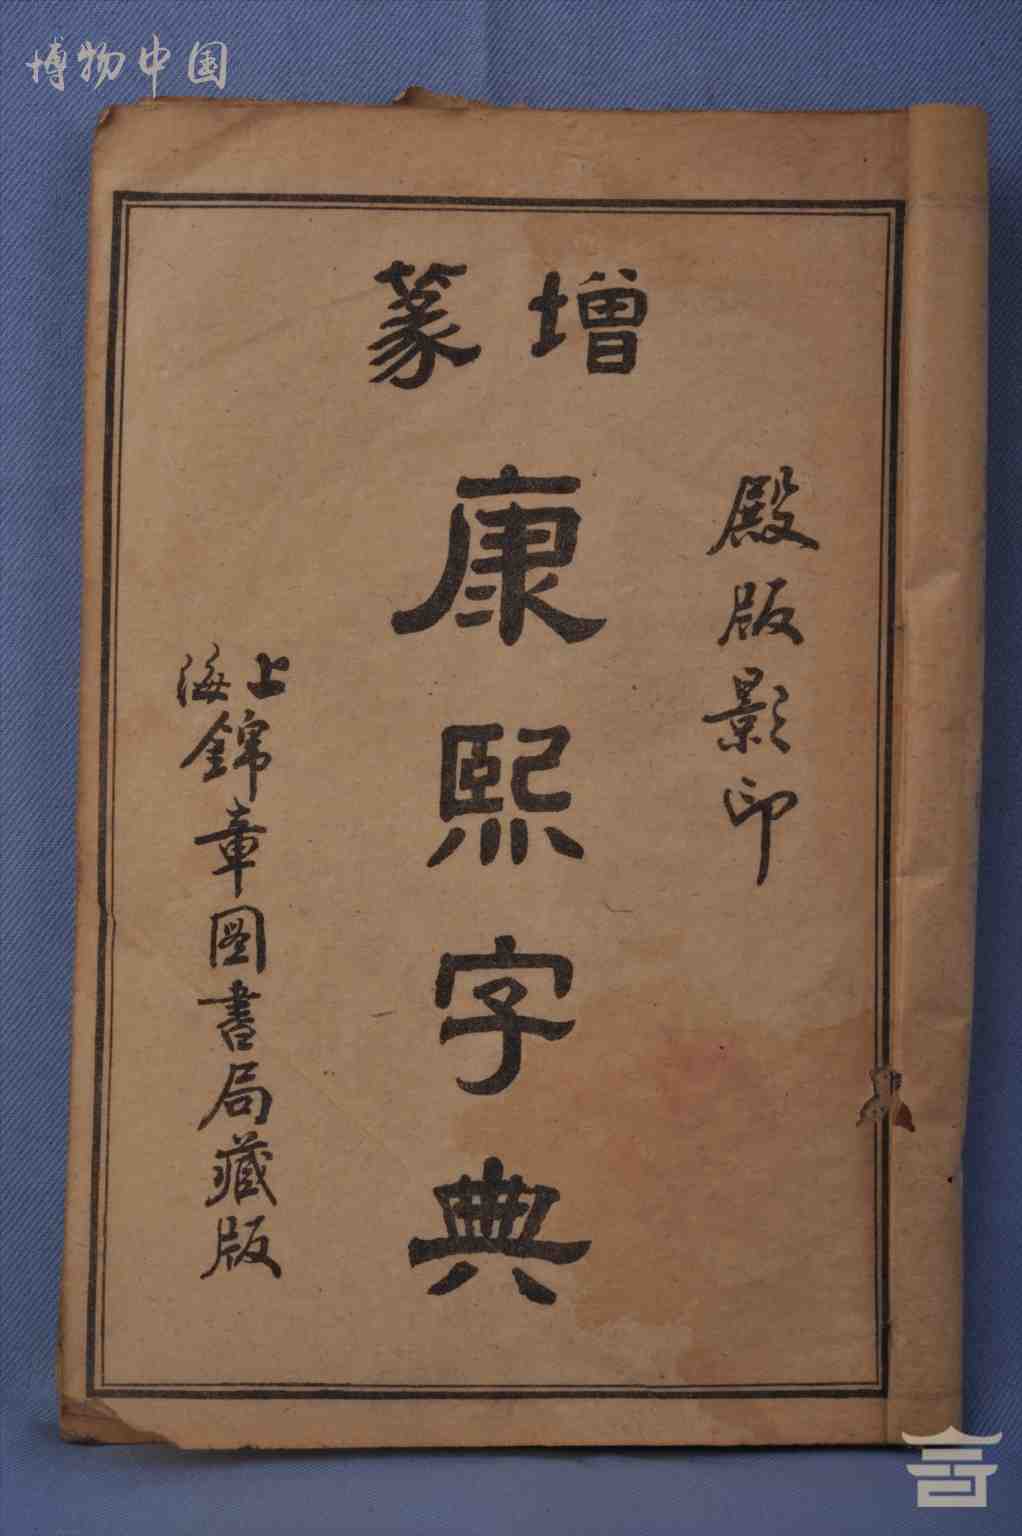 博物中国
增篆
殿版影印
康熙字典
上海錦章圖書局藏版